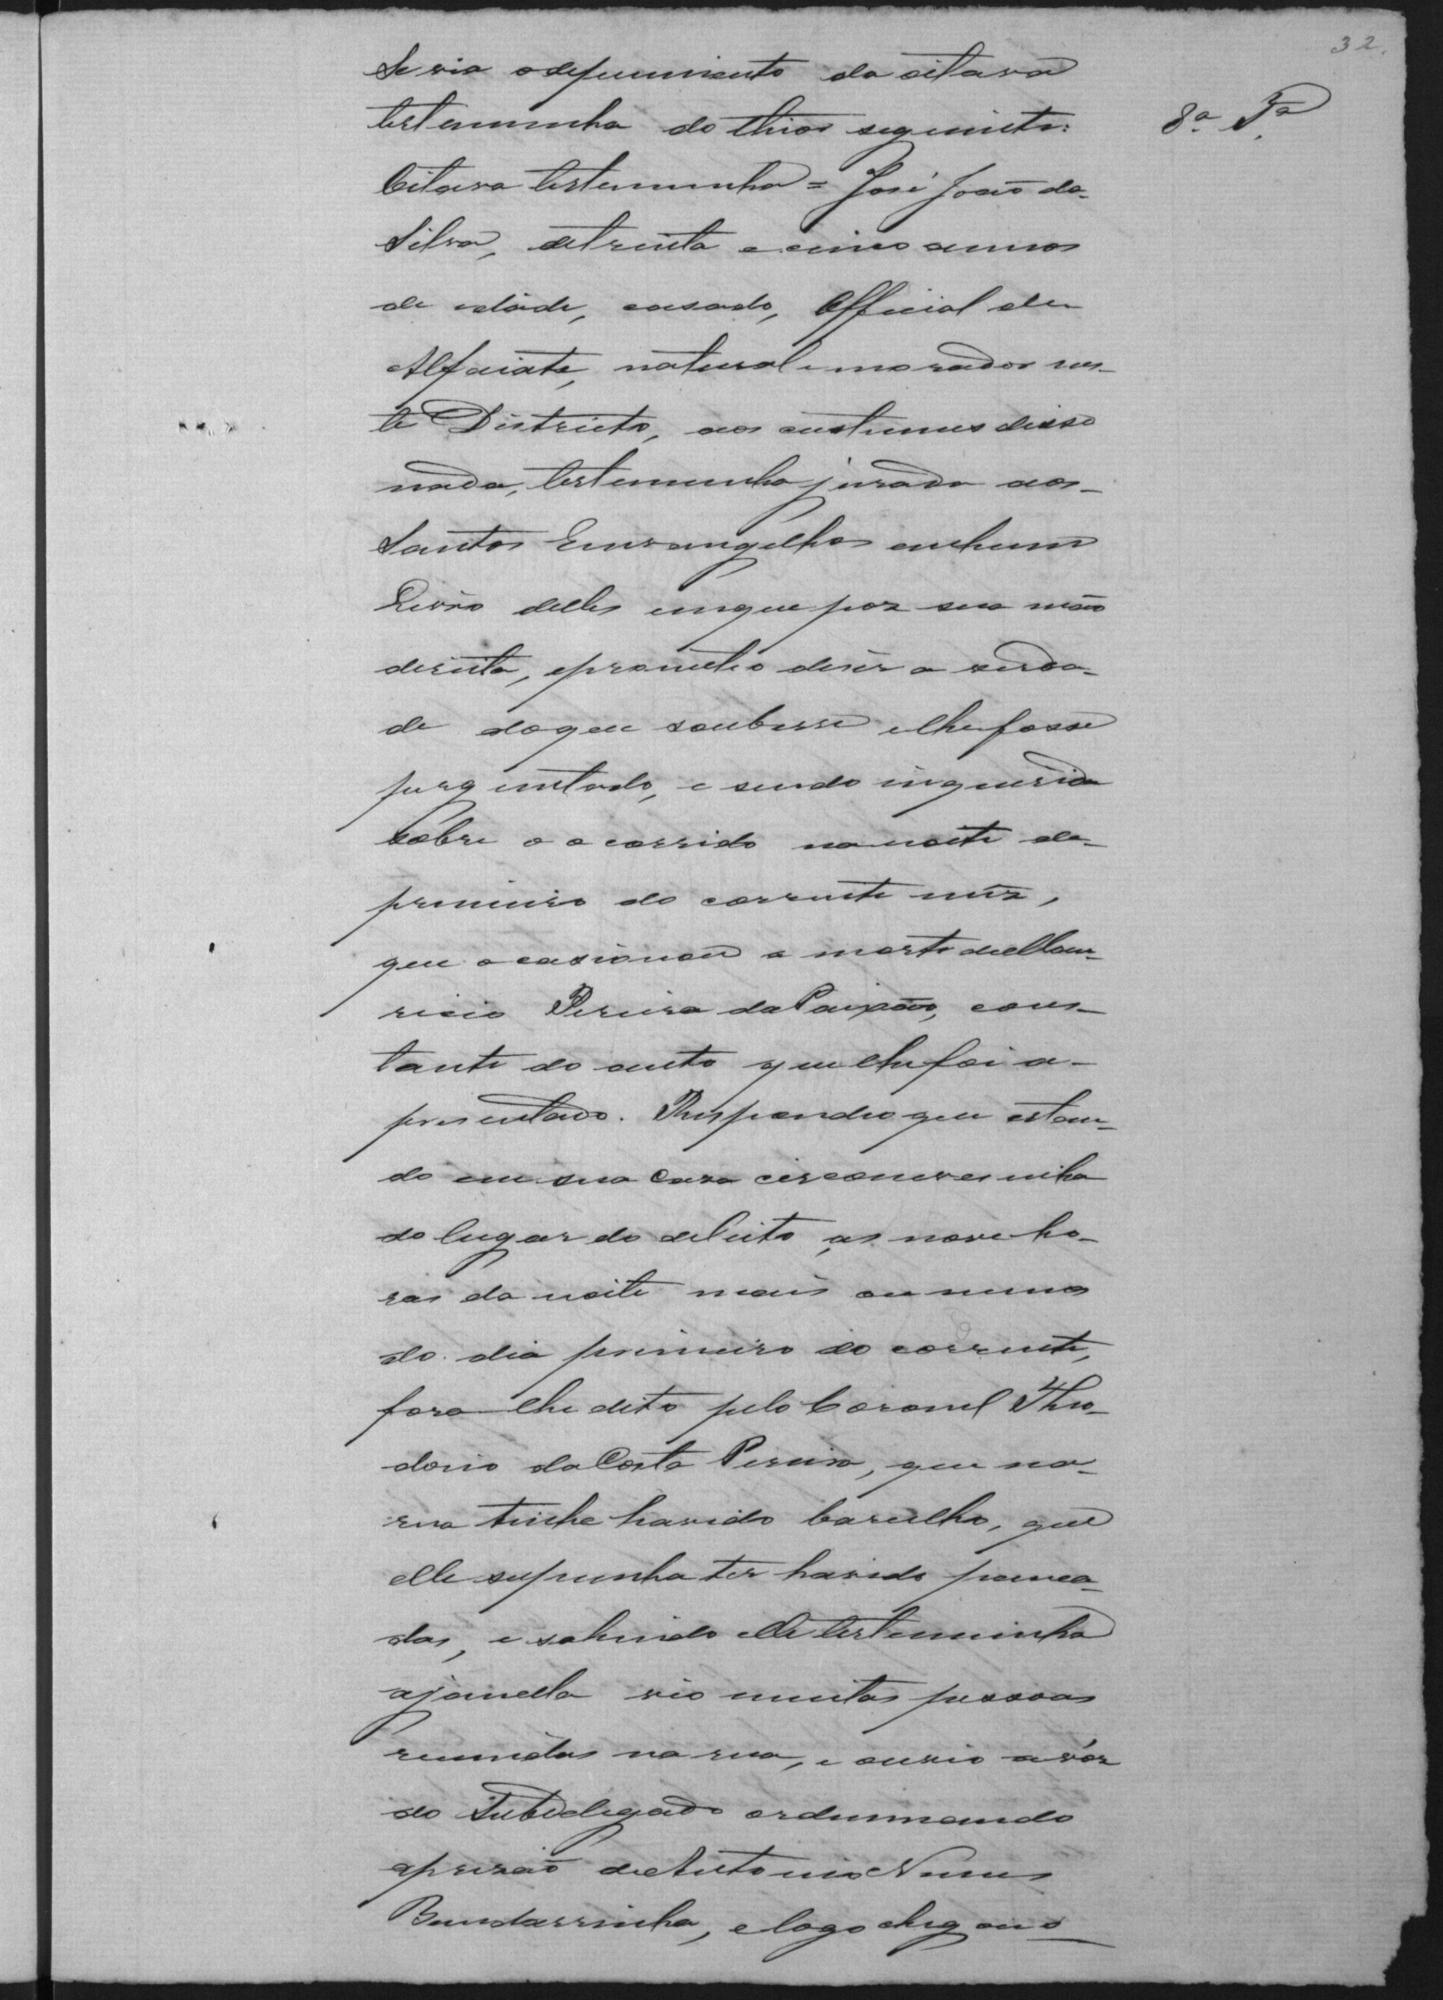 32.
Se via o depuimento da oitava
testemunha do theor seguinte:
8ª Tª
Oitava testemunha = José João da
Silva, de trinta e cinco annos
de edade, casado, Official de
Alfaiate, natural e morador nes-
te Districto, aos custumes disse
nada, testemunha jurada aos
Santos Envangelhos em hum
Livro delles em que poz sua mão
direita, e prometeo diser a verda-
de do que soubesse e lhe fosse
perguntado, e sendo inquerida
sobre o occorrido na noite de
primeiro do corrente mez,
que occasionou a morte de Mau-
ricio Pereira da Paixão, cons-
tante do auto que lhe foi a-
presentado. Respondeo que estan-
do em sua casa circonvesinha
do lugar do delicto, as nove ho-
ras da noite mais ou menos
do dia primeiro do corrente,
fora lhe dito pelo Coronel Theo-
dorio da Costa Pereira, que na
rua tinha havido barulho, que
elle supunha ter havido panca-
das, e sahindo elle testemunha
a janella vio muitas pessoas
reunidas na rua, e ouvio a vóz
do Subdelegado ordennando
a prisão de Antonio Nunes
Bundarrinha, e logo chegou o